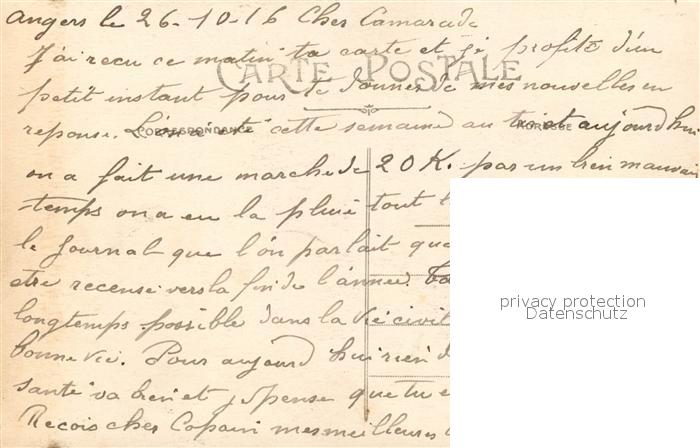 Angers le 26-10-16 Cher Camarade
J'ai recu ce matin ta carte et je profite d'un
CARTE POSTALE
petit instant pour te donner de mes nouvelles en
reponse. cette semaine au tir et aujourd hui
CORRESPONDANCE ADRESSE
on a fait une marche de 20 K. par un bien mauvais
temps on a eu la pluie tout
le journal que l'on parlait que
etre recensé vers la fin de l'année.
longtemps possible dans la vie civil
bonne vie. Pour aujourd hui rien d
santé va bien et j'spense que tu e
Recois cher Copain mes meilleures
privacy protection
Datenschutz